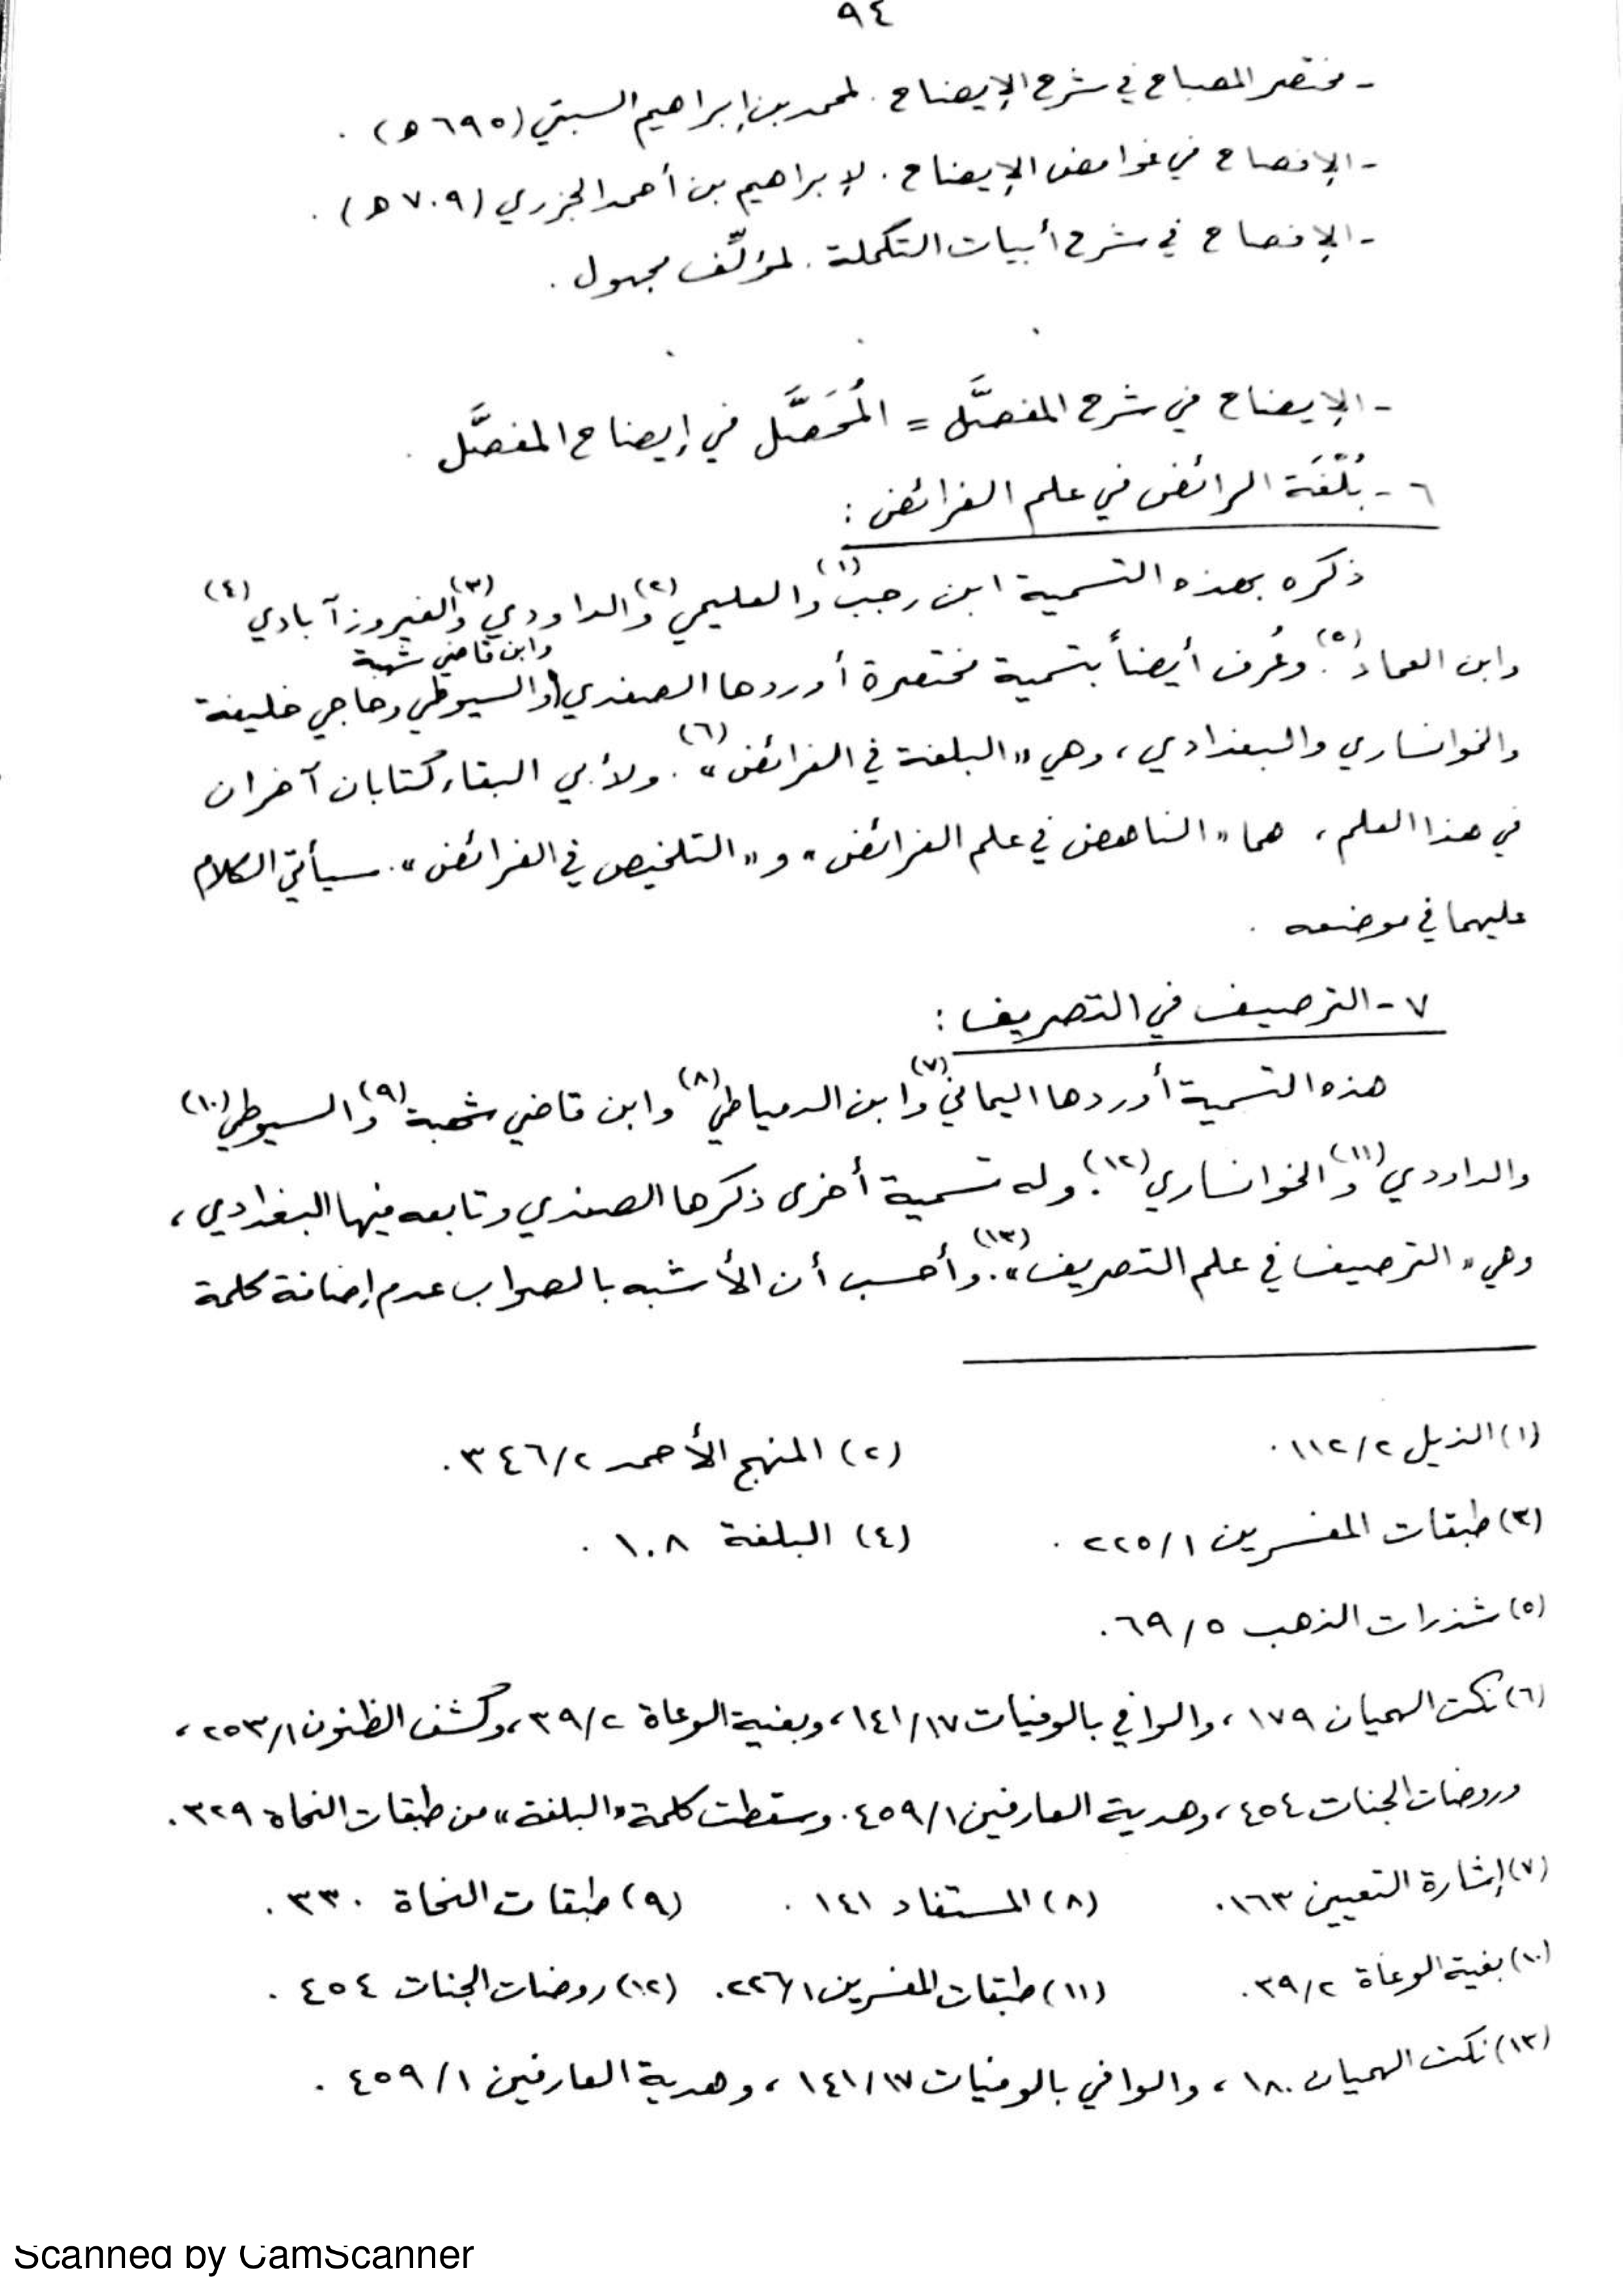 ٩٤
- مختصر المصباح في شرح الإيضاح. لمحمد بن إبراهيم السبتي (٦٩٥ ه) .
- الإفصاح في غوامض الإيضاح. لإبراهيم بن أحمد الجزري (٧٠٩ ه) .
- الإفصاح في شرح أبيات التكملة. لمؤلِّف مجهول .
- الإيضاح في شرح المفصَّل = المُحَصَّل في إيضاح المفصَّل .
٦- بُلْغَة الرائض في علم الفرائض :
ذكره بهذه التسمية ابن رجب(١) والعليمي(٢) والداودي(٣) والفيروزآبادي(٤)
وابن قاضي شهبة
وابن العماد(٥). وعُرف أيضاً بتسمية مختصرة أوردها الصفدي والسيوطي وحاجي خليفة
والخوانساري والبغدادي، وهي «البلغة في الفرائض»(٦). ولأبي البقاء كتابان آخران
في هذا العلم، هما «الناهض في علم الفرائض» و«التلخيص في الفرائض». سيأتي الكلام
عليهما في موضعه .
٧- الترصيف في التصريف :
هذه التسمية أوردها اليماني(٧) وابن الدمياطي(٨) وابن قاضي شهبة(٩) والسيوطي(١٠)
والداودي(١١) والخوانساري(١٢). وله تسمية أخرى ذكرها الصفدي وتابعه فيها البغدادي،
وهي «الترصيف في علم التصريف»(١٣). وأحسب أن الأشبه بالصواب عدم إضافة كلمة
(١) الذيل ١١٢/٢. (٢) المنهج الأحمد ٣٤٦/٢.
(٣) طبقات المفسرين ٢٢٥/١ . (٤) البلغة ١٠٨ .
(٥) شذرات الذهب ٦٩/٥.
(٦) نكت الهميان ١٧٩، والوافي بالوفيات ١٤١/١٧، وبغية الوعاة ٣٩/٢، وكشف الظنون ٢٥٣/١،
وروضات الجنات ٤٥٤، وهدية العارفين ٤٥٩/١. وسقطت كلمة «البلغة» من طبقات النحاة ٣٢٩.
(٧) إشارة التعيين ١٦٣. (٨) المستفاد ١٤١ . (٩) طبقات النحاة ٣٣٠ .
(١٠) بغية الوعاة ٣٩/٢. (١١) طبقات المفسرين ٢٢٦/١. (١٢) روضات الجنات ٤٥٤ .
(١٣) نكت الهميان ١٨٠، والوافي بالوفيات ١٤١/١٧، وهدية العارفين ٤٥٩/١ .
Scanned by CamScanner